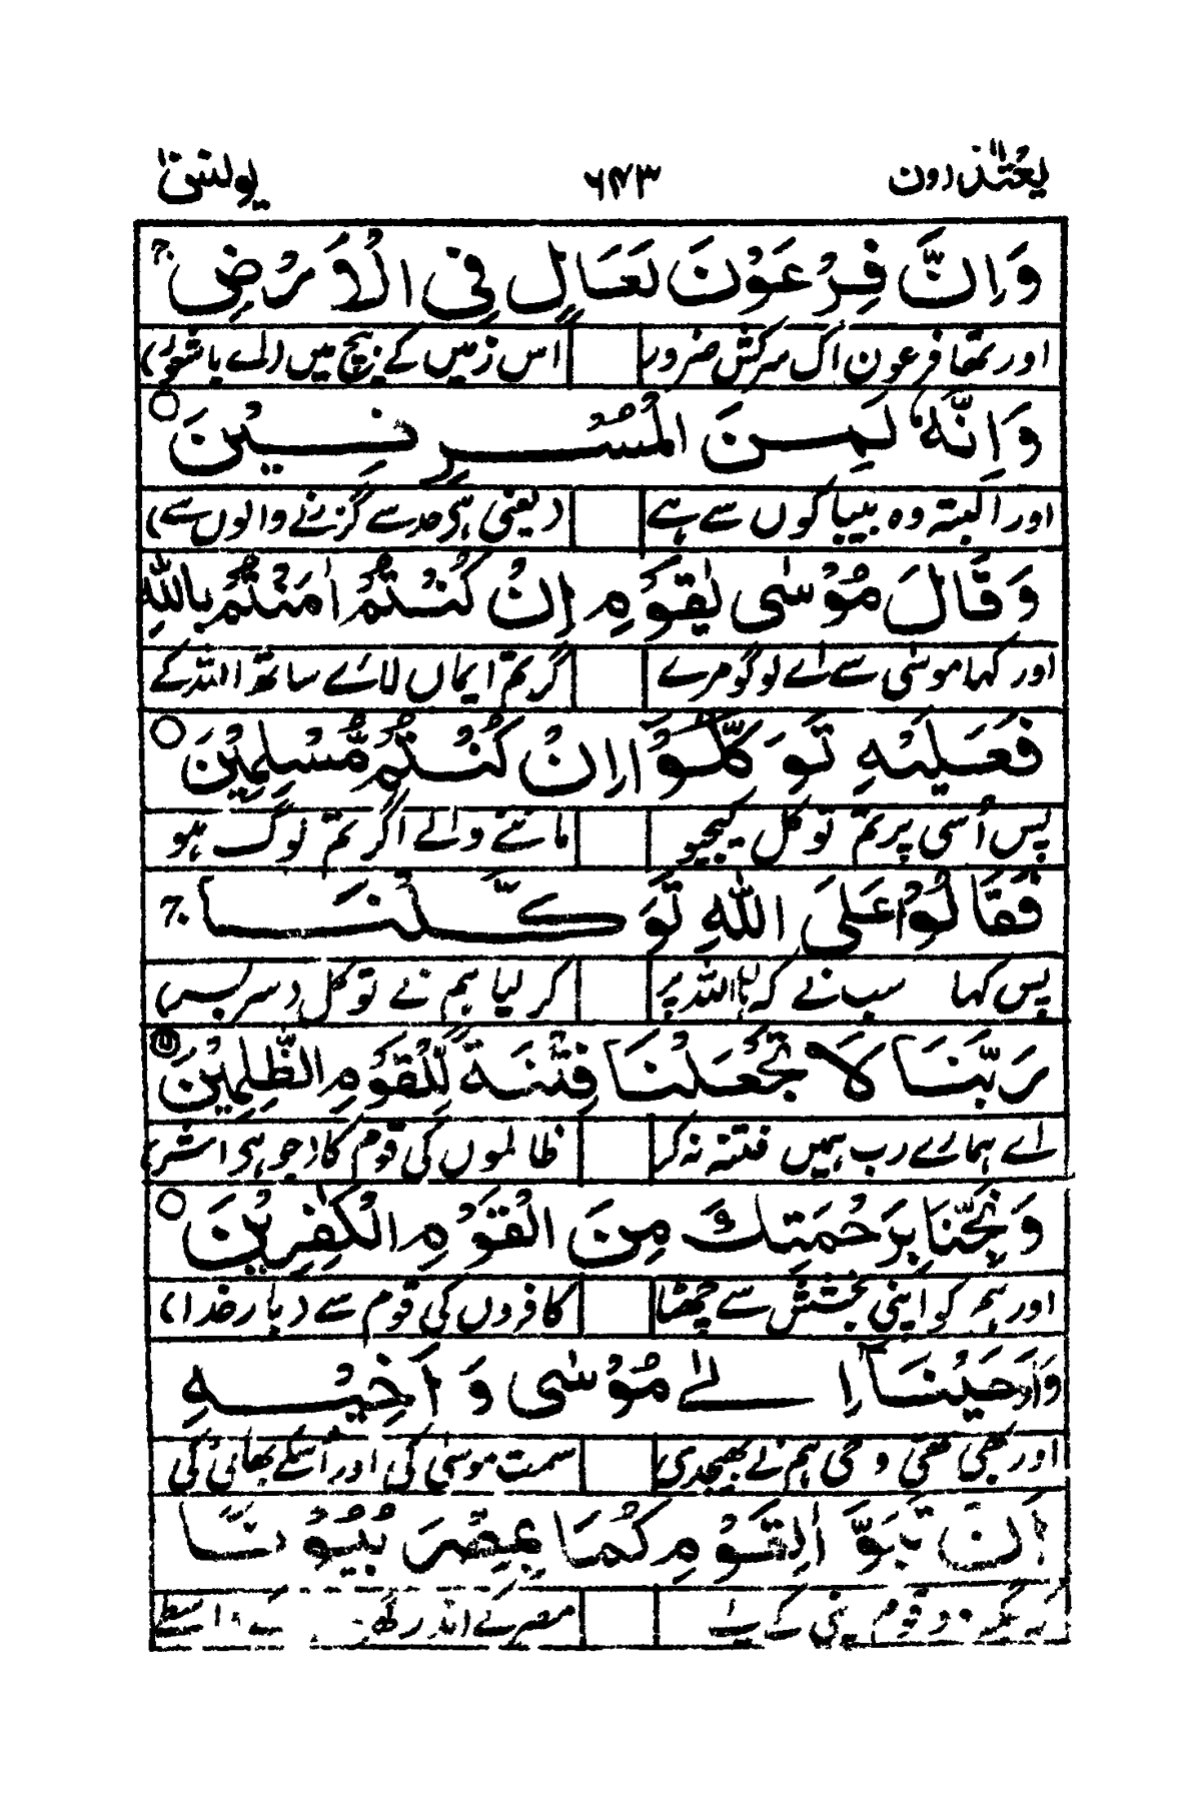 یعتذرون ۶۴۳ یونس
وَاِنَّ فِرْعَوْنَ لَعَالٍ فِی الْاَرْضِ
اور تھا فرعون اک سرکش ضرور اس زمیں کے بیچ میں
وَاِنَّهٗ لَمِنَ الْمُسْرِفِیْنَ
اور البتہ وہ بیباکوں سے ہے (یعنی ہی حد سے گزرنے والوں سے)
وَقَالَ مُوْسٰی یٰقَوْمِ اِنْ كُنْتُمْ اٰمَنْتُمْ بِاللّٰهِ
اور کہا موسٰی سے اے لوگو مرے گر تم ایماں لائے ساتھ اللہ کے
فَعَلَیْهِ تَوَكَّلُوْۤا اِنْ كُنْتُمْ مُّسْلِمِیْنَ
پس اُسی پر تم توکل کیجیو ماننے والے اگر تم لوگ ہو
فَقَالُوْا عَلَی اللّٰهِ تَوَكَّلْنَا
پس کہا سب نے کہ ہاں اللہ پر کر لیا ہم نے توکل (سربسر)
رَبَّنَا لَا تَجْعَلْنَا فِتْنَةً لِّلْقَوْمِ الظّٰلِمِیْنَ
اے ہمارے رب ہمیں فتنہ نہ کر ظالموں کی قوم کا (جو ہی اشر)
وَنَجِّنَا بِرَحْمَتِكَ مِنَ الْقَوْمِ الْكٰفِرِیْنَ
اور ہم کو اپنی بخشش سے چھٹا کافروں کی قوم سے (بار خدا)
وَاَوْحَیْنَاۤ اِلٰی مُوْسٰی وَاَخِیْهِ
اور بھی تھی وحی ہم نے بھیجدی سمت موسٰی کی اور اُسکے بھائی کی
اَنْ تَبَوَّاٰ لِقَوْمِكُمَا بِمِصْرَ بُیُوْتًا
قوم کے مصر کے اندر